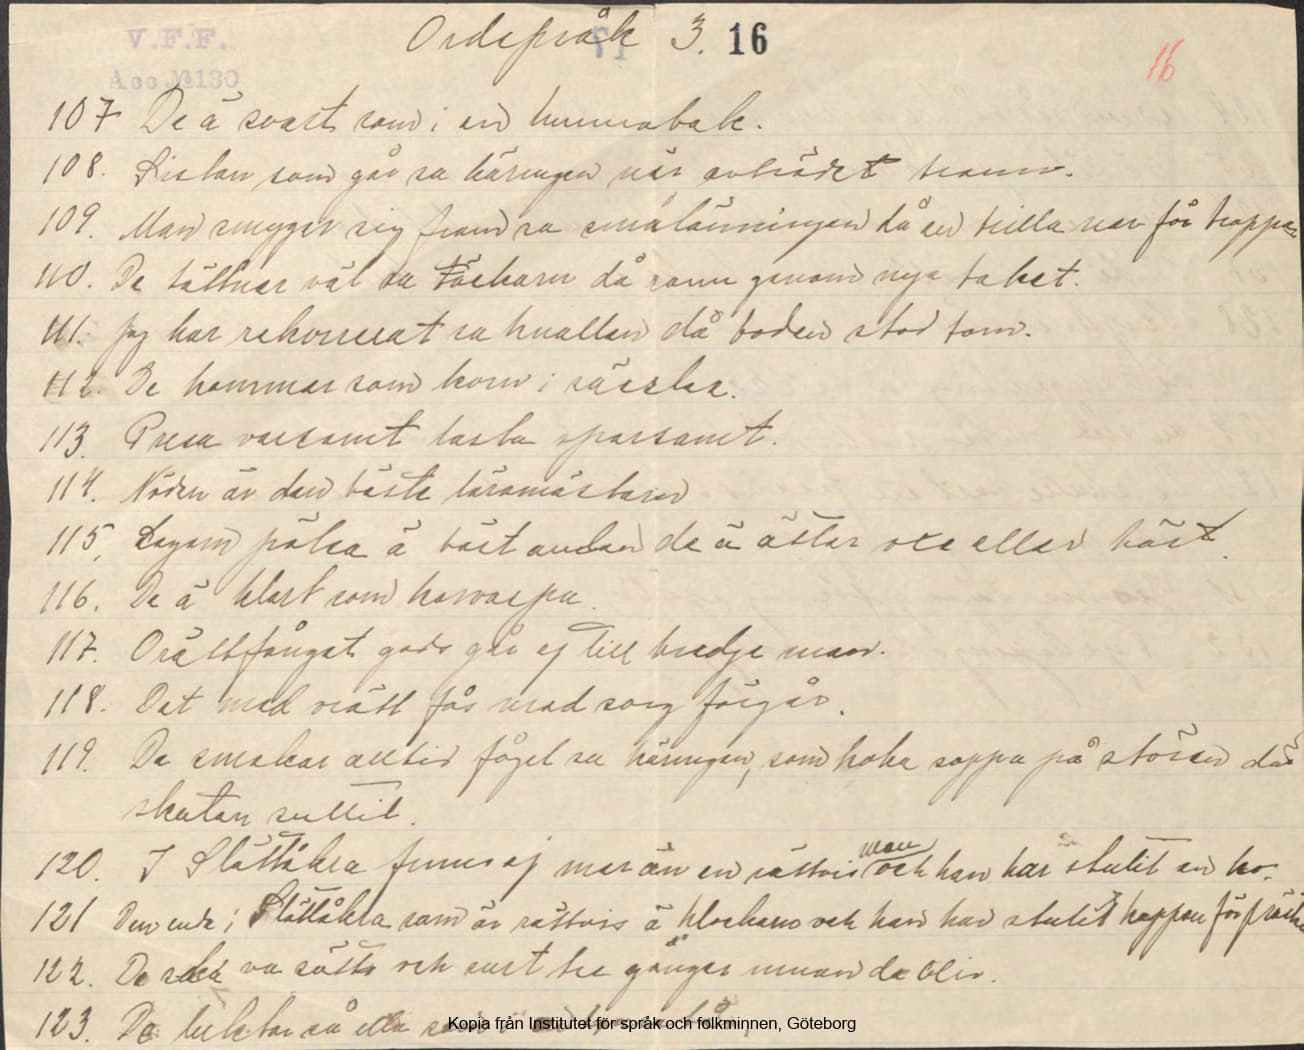 V.F.F.
Acc №130
Ordspråk 3. 16
16
107 De ä svart som i en hummabak.
108. Sicken som går sa käringen när avträdet brann.
109. Man smyger sig fram sa smålänningen då en trilla ner för trappan
110. De tättnar väl sa Täckarn då rann genom nya taket.
111. Jag har rekomerat sa knallen då boden stod tom.
112. De kommer som korn i säcker.
113. Presa varsamt lasta sparsamt.
114. Nöden är den bäste läromästaren
115. Lagom pölsa ä bäst andan de ä ätter oxe eller häst.
116. De ä klart som korvaspa.
117. Orättfånget gods går ej till tredje man.
118. Det med orätt fås med sorg förgår.
119. De smakar alltid fågel sa käringen, som koka soppa på stören där
skatan suttit.
120. I Slättåkra finns ej mer än en rättvis man och han har stulit en ko.
121 Den enda i Slättåkra som är rättvis ä klockarn och han har stulit kappan för präst
122. De ska va sött och surt tre gånger innan de blir.
123. De luktar så illa som
Kopia från Institutet för språk och folkminnen, Göteborg